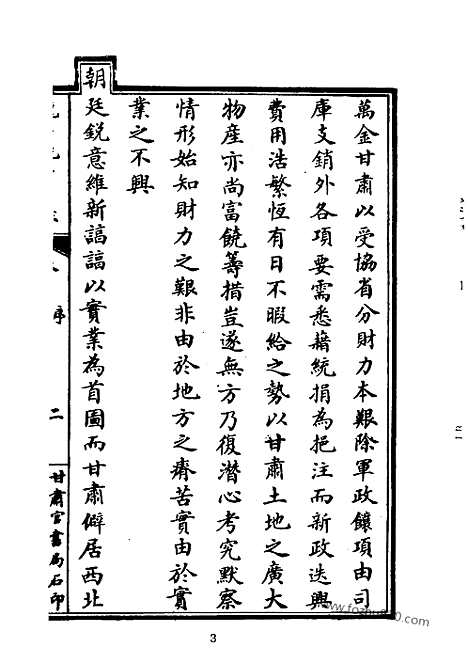 萬金甘肅以受協省分財力本艱除軍政饟項由司
庫支銷外各項要需悉藉統捐為挹注而新政迭興
費用浩繁恆有日不暇給之勢以甘肅土地之廣大
物產亦尚富饒籌措豈遂無方乃復潛心考究默察
情形始知財力之艱非由於地方之瘠苦實由於實
業之不興
朝廷銳意維新諄諄以實業為首圖而甘肅僻居西北
序
二
甘肅官書局石印
3